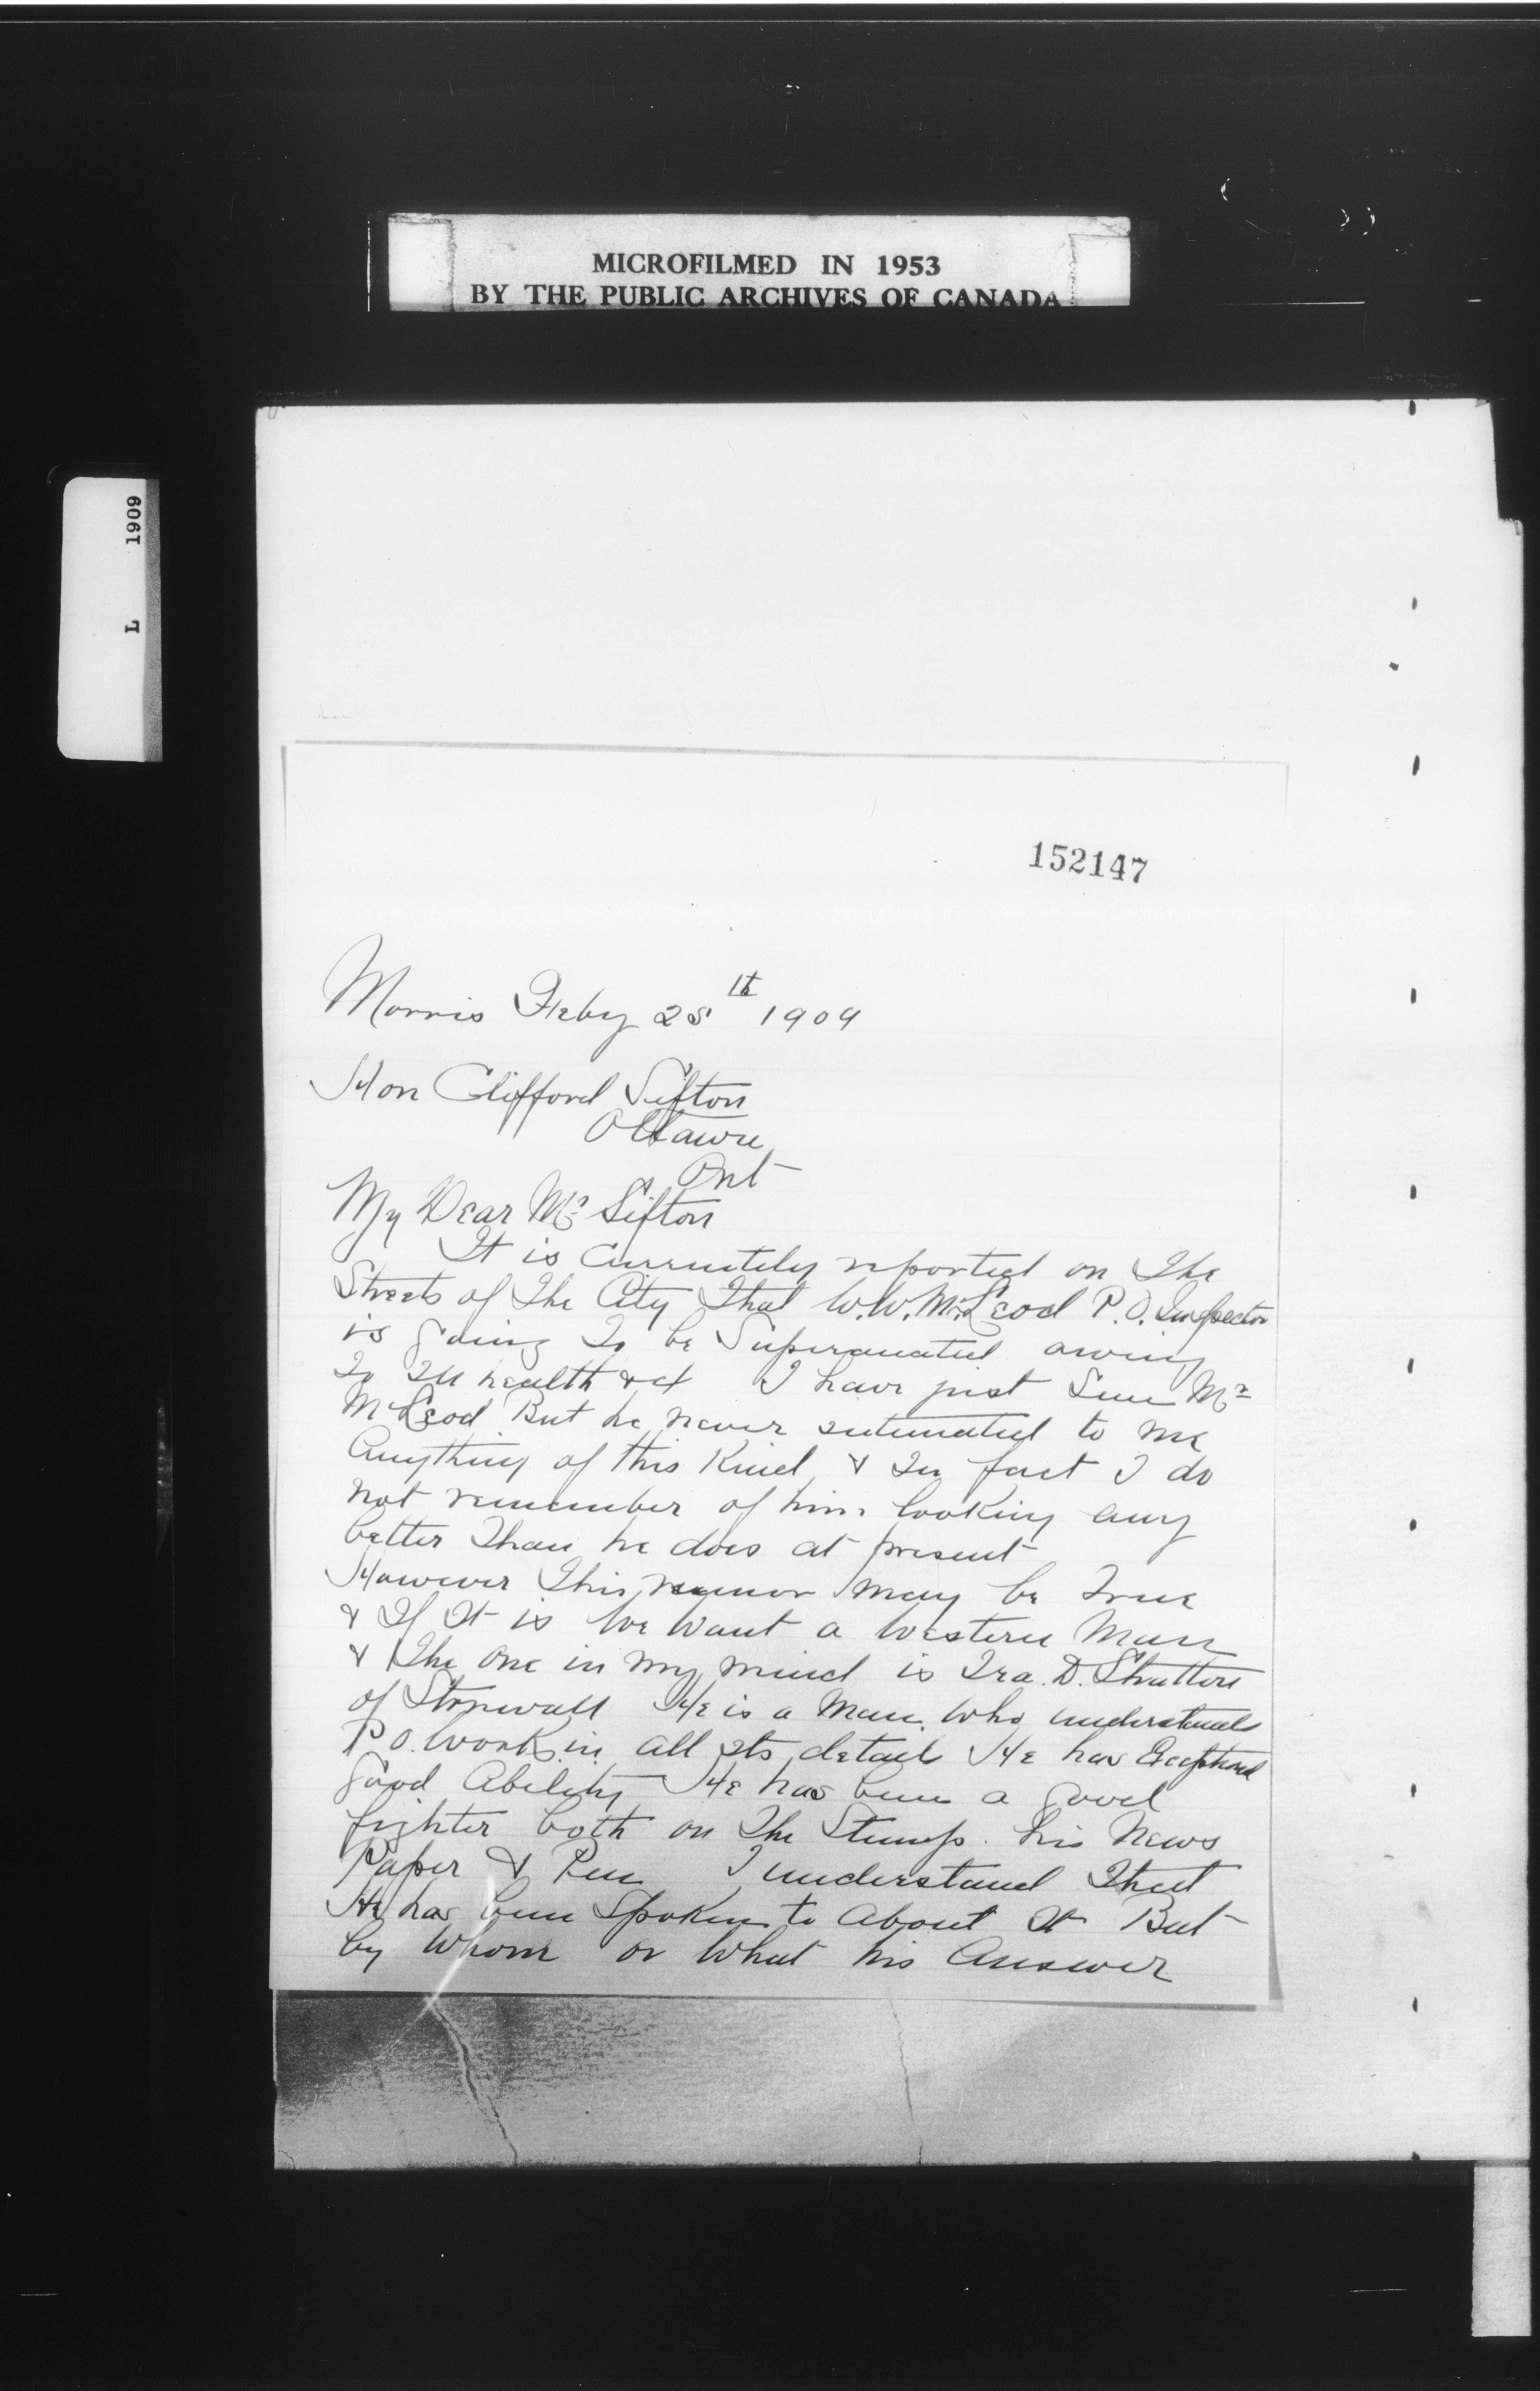 MICROFILMED IN 1953
BY THE PUBLIC ARCHIVES OF CANADA
1909 L
152147
Morris Feby 25th 1909
Hon Clifford Sifton
Ottawa
Ont
My Dear Mr Sifton
It is currently reported on The
Streets of The City That W.W. McLeod P.O. Inspector
is going To be Superanated owing
To Ill health &c I have just Seen Mr
McLeod But he never intimated to me
Anything of this Kind & In fact I do
not remember of him looking any
better Than he does at present
However This rumor may be True
& If It is We Want a Western Man
& The One in my mind is Ira. D. Stratton
of Stonwall He is a Man Who understands
P.O. Work in all Its detail He has Exceptional
good Ability He has been a good
fighter both on The Stump. his News
Paper & Pen I understand That
He has been Spoken to About It But
by Whom or What his Answer